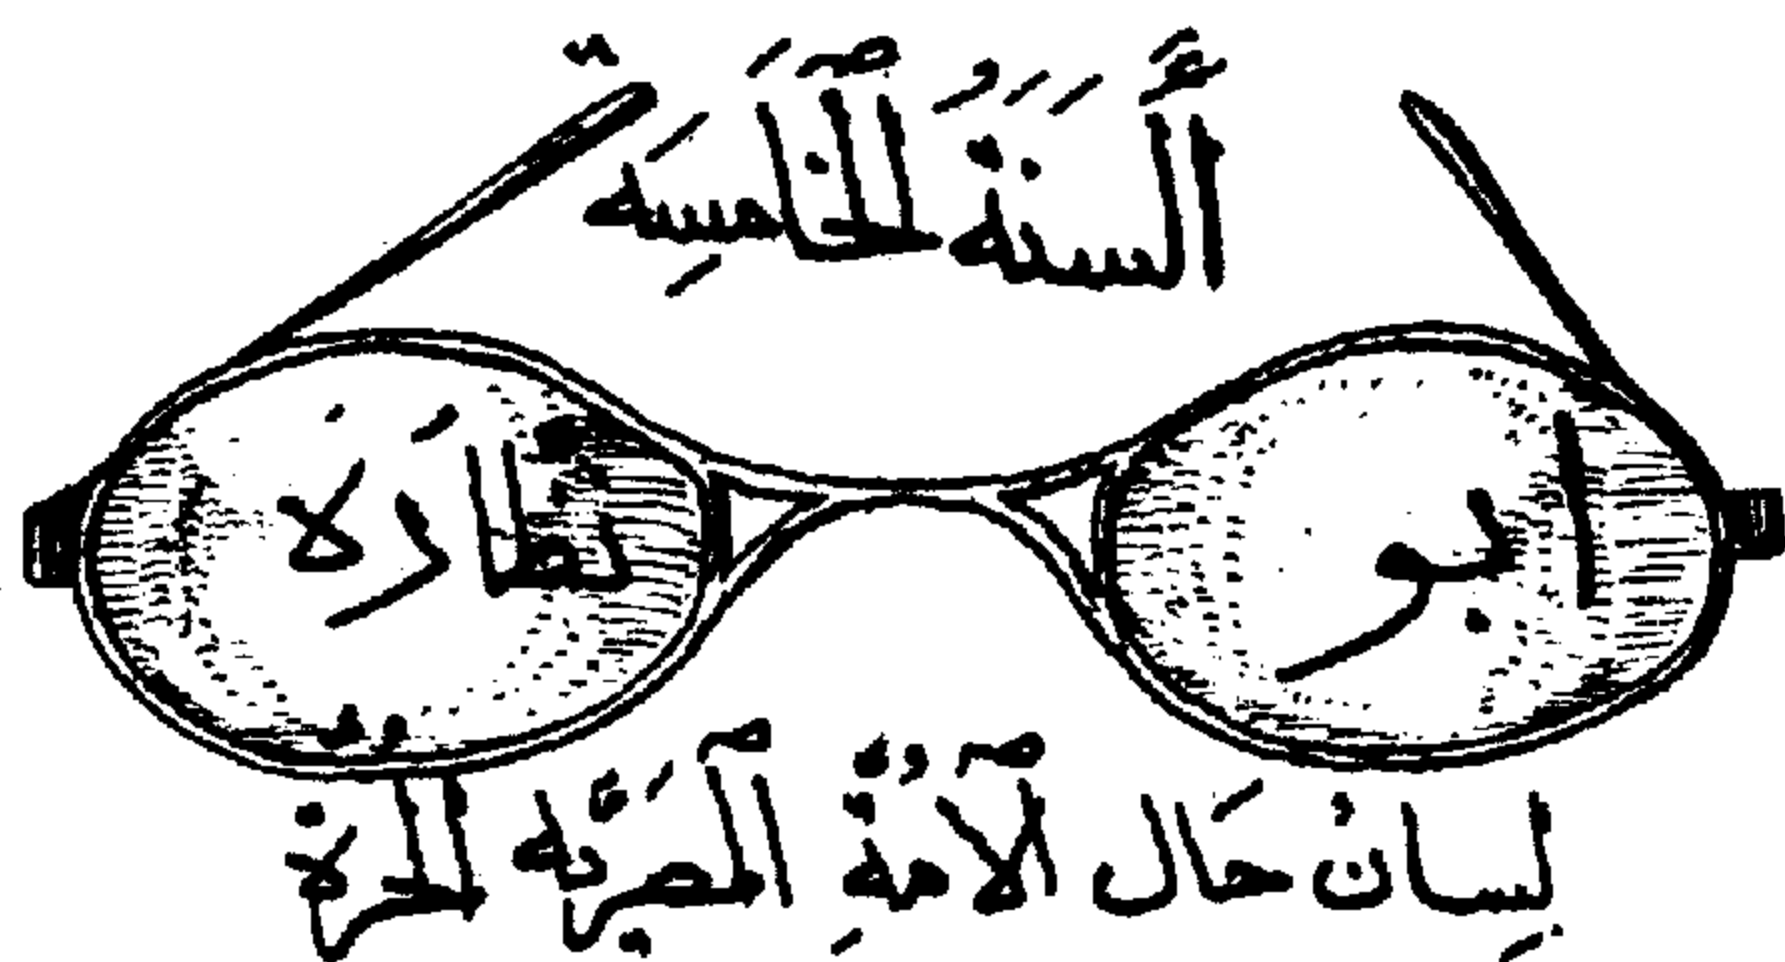 اَلسَّنَةُ الْخَامِسَه
ابو نظّارَة
لِسانُ حَال الْاُمّةِ الْمَصريَّه الْحُرّة